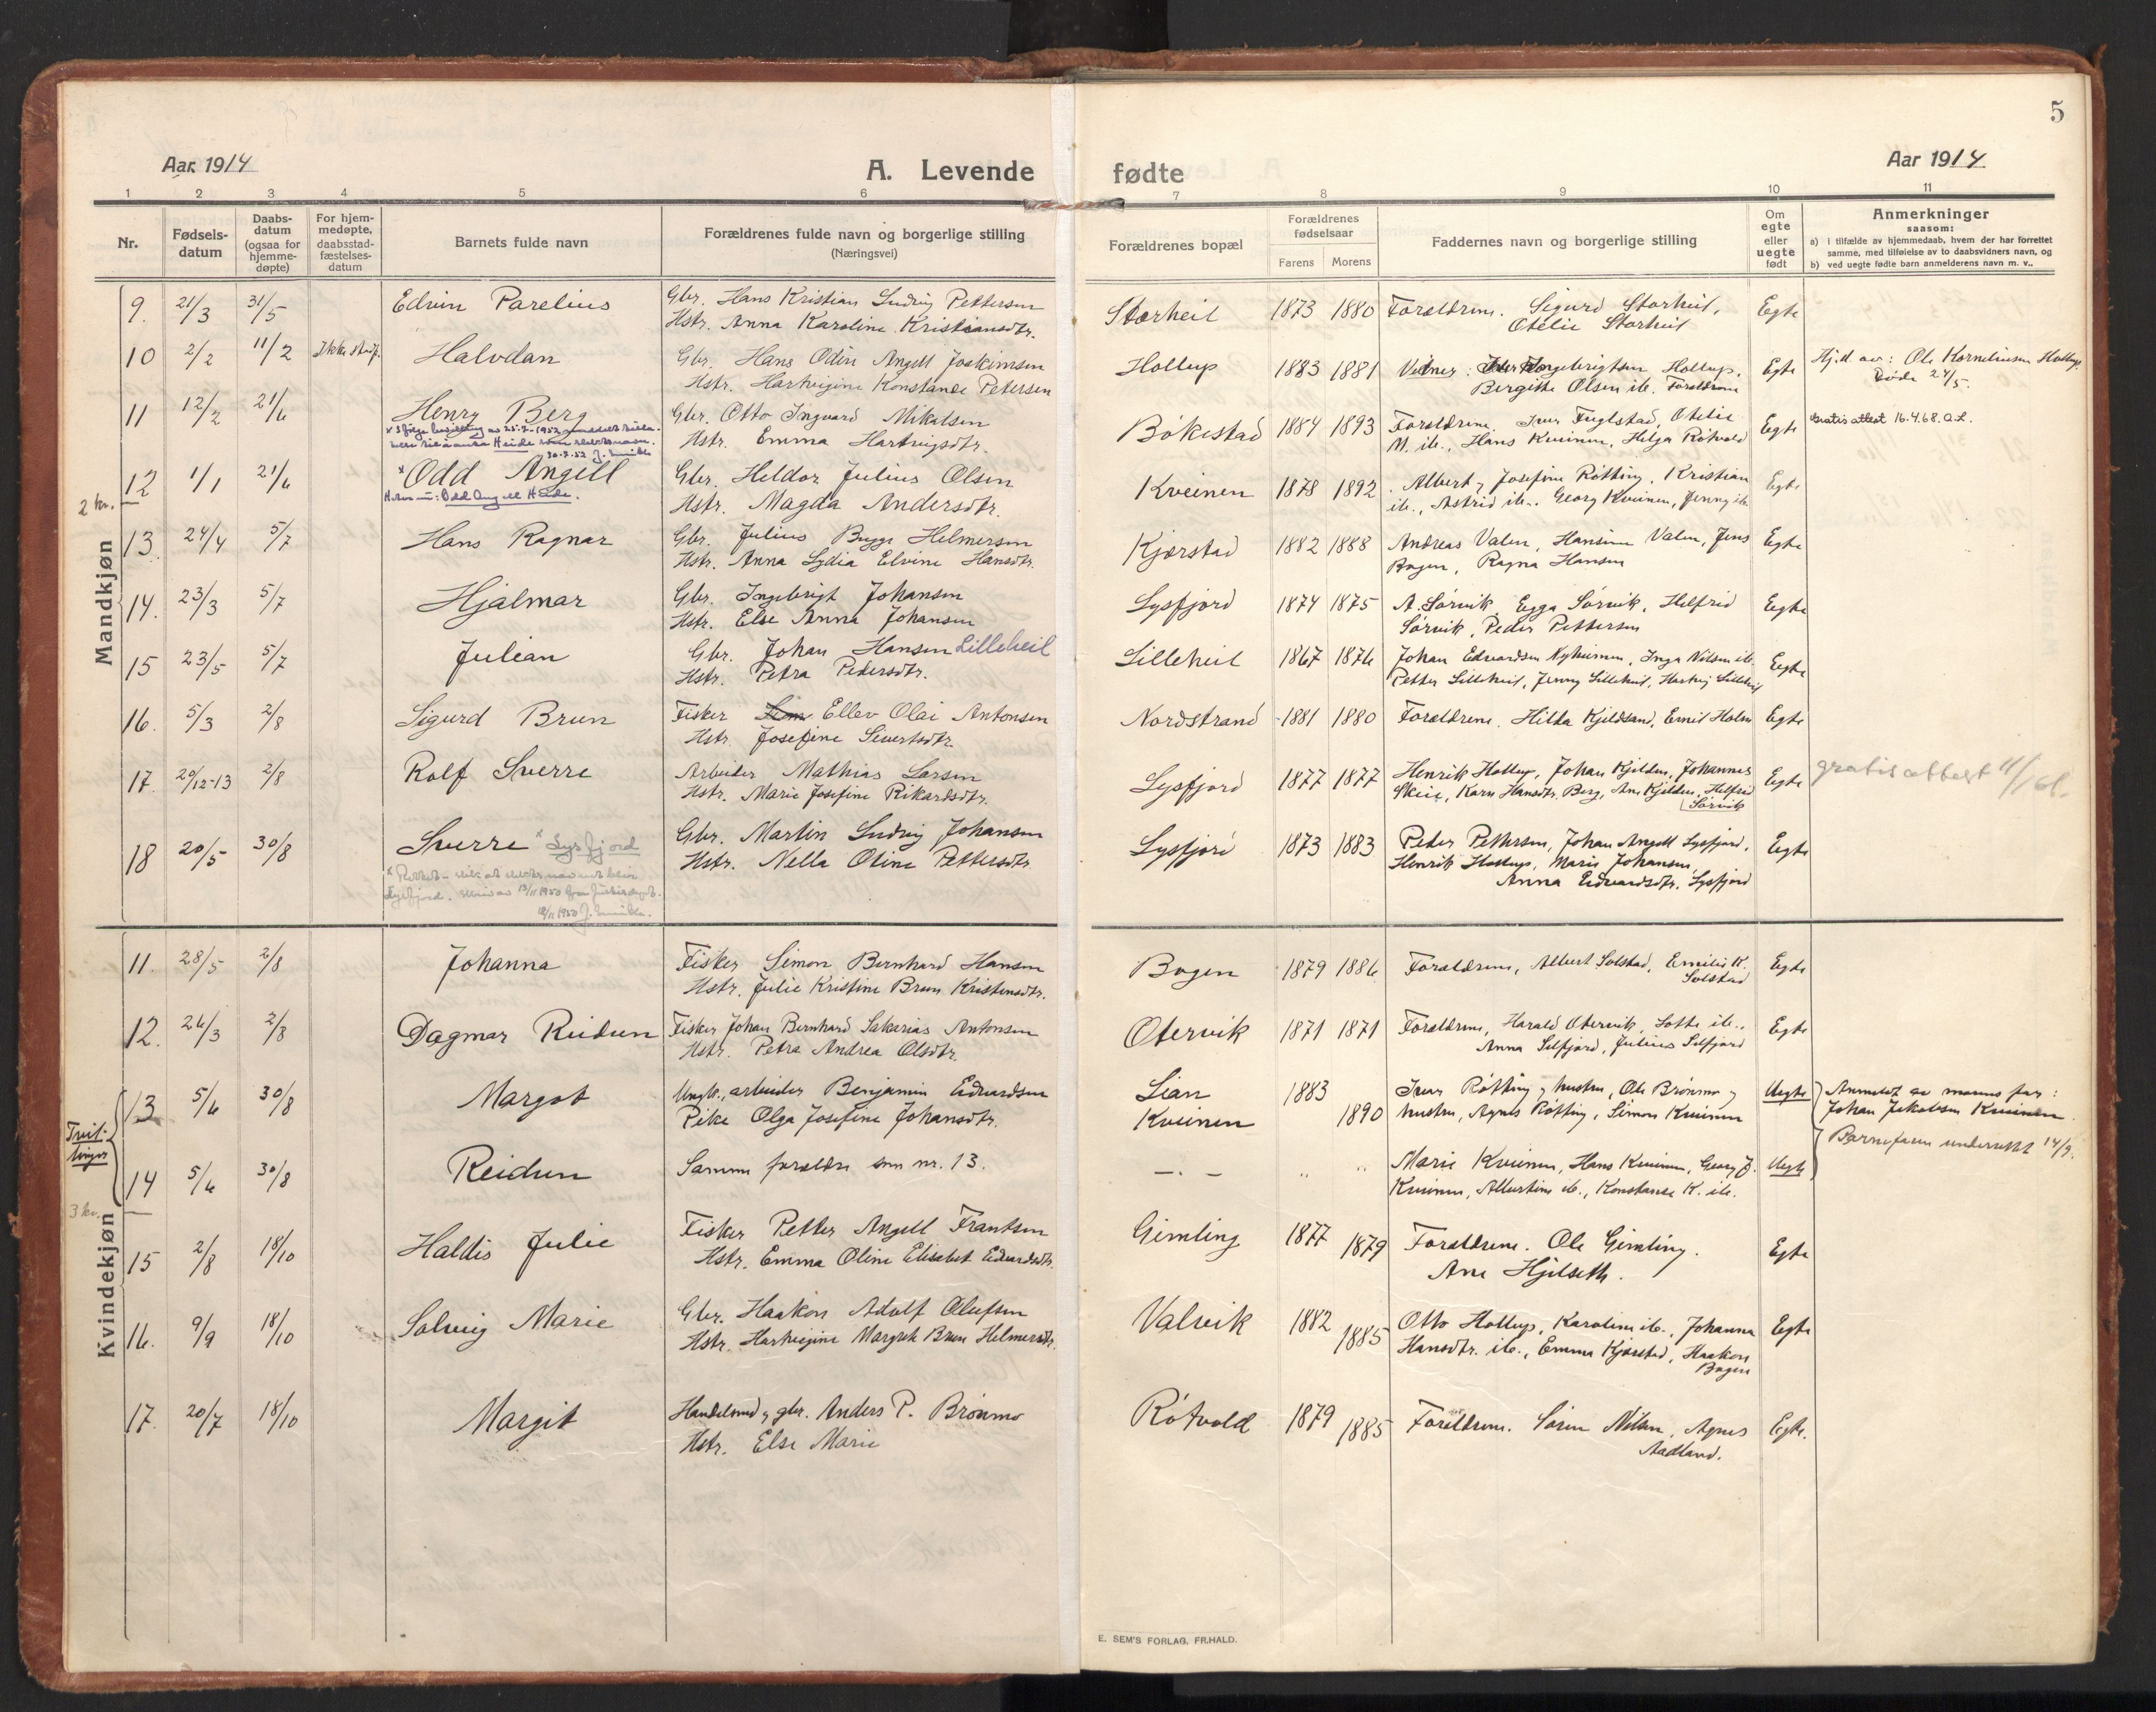 5
Aar 1914
A. Levende
fødte
Aar 1914
1 2 3 4 5 6 7 8 9 10 11
Nr.
Fødsels-
datum
Daabs-
datum
(ogsaa for
hjemme-
døpte)
For hjem-
medøpte,
daabsstad-
fæstelses-
datum
Barnets fulde navn
Forældrenes fulde navn og borgerlige stilling
(Næringsvei)
Forældrenes bopæl
Forældrenes
fødselsaar
Farens Morens
Faddernes navn og borgerlige stilling
Om
egte
eller
uegte
født
Anmerkninger
saasom:
a) i tilfælde av hjemmedaab, hvem der har forrettet
samme, med tilføielse av to daabsvidners navn, og
b) ved uegte fødte barn anmelderens navn m. v..
Mandkjøn
9. 21/3 31/5 Edvin Parelius Gbr. Hans Kristian Ludvig Pettersen Storheil 1873 1880 Forældrene. Sigurd Storheil, Egte
Hstr. Anna Karoline Kristiansdtr. Otelie Storheil
10 2/2 11/2 Ikke Halvdan Gbr. Hans Odin Angell Joakimsen Hollup 1883 1881 Vidner: Ingebrigtsen Hollup, Egte Hj.d av: Ole Korneliusen Hollup
Hstr. Hartvigine Konstanse Petersen Bergitte Olsen ib. Forældrene Død 24/5.
11 12/2 21/6 Henry Berg Gbr. Otto Ingvard Mikalsen Bökestad 1884 1893 Forældrene, Iver Fuglstad, Otelie Egte Gratis attest 16.4.68. O.L.
Hstr. Emma Hartvigsdtr. M. ib., Hans Kveinen, Helga Rötvold
x Ifølge bevilling av 25.7-1952 meddelt
Heide som slektsnavn.
30.7.52 J.
2 kr. 12 1/1 21/6 x Odd Angell Gbr. Heldor Julius Olsen Kveinen 1878 1892 Albert og Josefine Rötting, Kristian Egte
Odd Angell Heide. Hstr. Magda Andersdtr. ib., Astrid ib., Georg Kveinen, Jenny ib.
13. 24/4 5/7 Hans Ragnar Gbr. Julius Bugge Helmersen Kjærstad 1882 1888 Andreas Valen, Hansine Valen, Jens Egte
Hstr. Anna Lydia Elvine Hansdtr. Bogen, Ragna Hansen
14. 23/3 5/7 Hjalmar Gbr. Ingebrigt Johansen Lysfjord 1874 1875 A. Sörvik, Egga Sörvik, Helfrid Egte
Hstr. Else Anna Johansen Sörvik, Peder Pettersen
15 23/5 5/7 Julian Gbr. Johan Hansen Lilleheil Lilleheil 1867 1876 Johan Edvardsen Nyheimen, Inga Nilsen ib. Egte
Hstr. Petra Pedersdtr. Petter Lilleheil, Jenny Lilleheil, Hartvig Lilleheil
16. 5/3 2/8 Sigurd Brun Fisker Ellev Olai Antonsen Nordstrand 1881 1880 Forældrene. Hilda Kjeldsand, Emil Holm Egte
Hstr. Josefine Sivertsdtr.
17. 20/12-13 2/8 Rolf Sverre Arbeider Mathias Larsen Lysfjord 1877 1877 Henrik Hollup, Johan Kjelden, Johannes Egte gratis attest 11/1 61.
Hstr. Marie Josefine Rikardsdtr. Skeie, Karen Hansdtr. Berg, Ane Kjelden, Helfrid
Sörvik
18 20/5 30/8 Sverre x Lysfjord Gbr. Martin Ludvig Johansen Lysfjord 1873 1883 Peder Pettersen, Johan Angell Lysfjord, Egte
Hstr. Nella Otine Pettersdtr. Henrik Hollup, Marie Johansen,
Anna Edvardsdtr. Lysfjord
x Rettet - slik at slektsnavnet blir
Lysfjord. 13/11 1950 fra
18/11 1950 J.
Kvindekjøn
11. 28/5 2/8 Johanna Fisker Simon Bernhard Hansen Bogen 1879 1886 Forældrene, Albert Solstad, Emilie K. Egte
Hstr. Julie Kristine Brun Kristensdtr. Solstad
12. 26/3 2/8 Dagmar Reidun Fisker Johan Bernhard Sakarias Antonsen Otervik 1871 1871 Forældrene, Harald Otervik, Lotte ib., Egte
Hstr. Petra Andrea Olsdtr. Anna Selfjord, Julius Selfjord
Tvil-
linger
13 5/6 30/8 Margot Ungk., arbeider Benjamin Edvardsen Lian 1883 Iver Rötting og hustru, Ole Brönmo og Uegte Anmeldt av morens far:
Pike Olga Josefine Johansdtr. Kveinen 1890 hustru, Agnes Rötting, Simon Kveinen Johan Jakobsen Kveinen.
Barnefaren underrettet 14/9.
14 5/6 30/8 Reidun Samme forældre som nr. 13. —.— " " Marie Kveinen, Hans Kveinen, Georg J. Uegte
3 kr. Kveinen, Albertine ib., Konstanse K. ib.
15 2/8 18/10 Haldis Julie Fisker Petter Angell Frantsen Gimling 1877 1879 Forældrene. Ole Gimling. Egte
Hstr. Emma Oline Elisabet Edvardsdtr. Ane Hjelseth.
16. 9/9 18/10 Solveig Marie Gbr. Haakon Adolf Olufsen Valvik 1882 1885 Otto Hollup, Karoline ib., Johanna Egte
Hstr. Hartvigine Margrete Brun Helmersdtr. Hansdtr. ib., Emma Kjærstad, Haakon
Bogen
17. 20/7 18/10 Margit Handelsmd. og gbr. Anders P. Brönmo Rötvold 1879 1885 Forældrene. Sören Nilsen, Agnes Egte.
Hstr. Else Marie Aadland.
E. SEM'S FORLAG, FR.HALD.